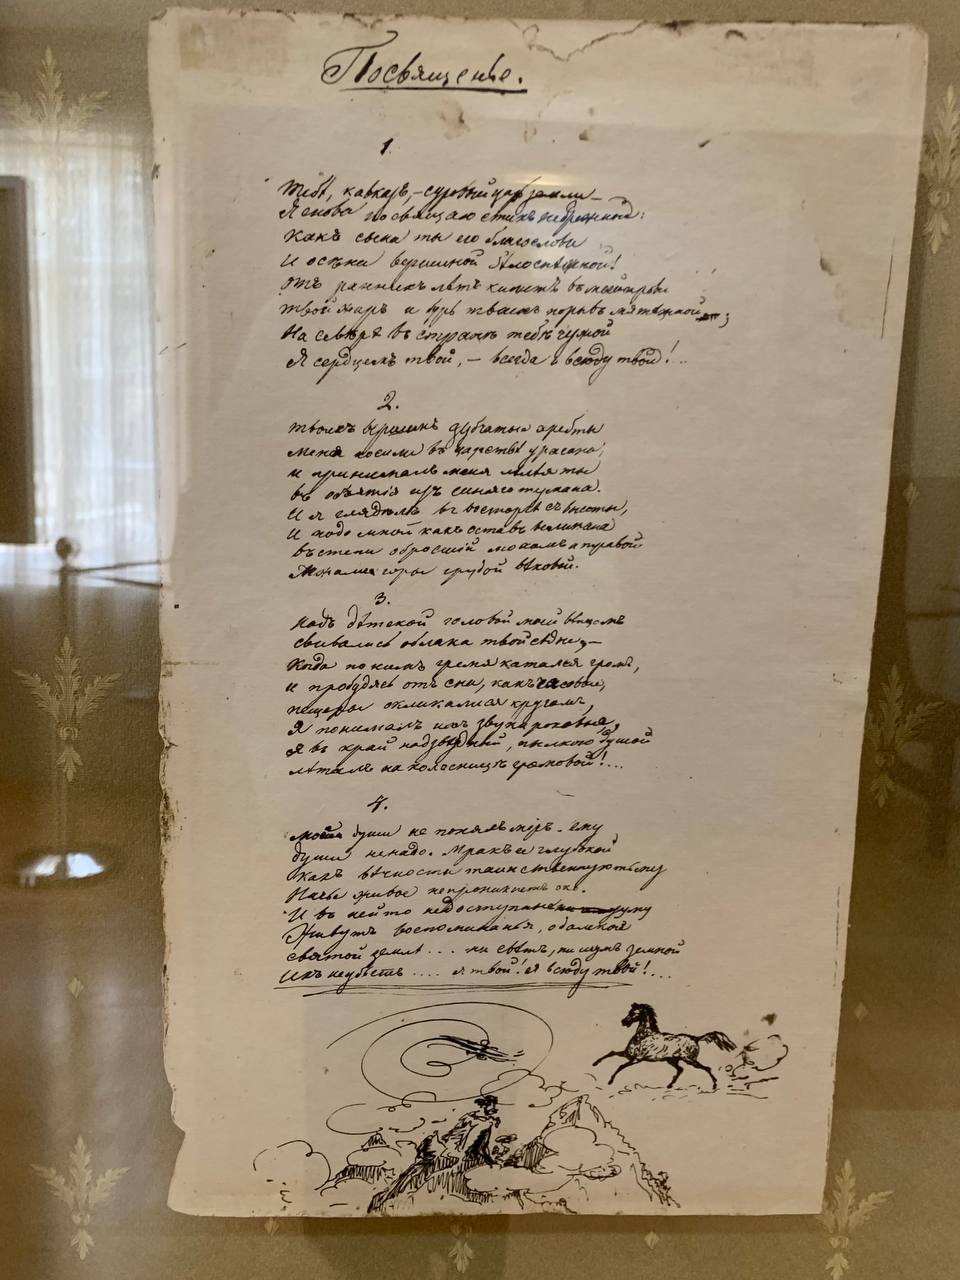 Посвященье.
1.
Тебѣ, кавказъ, – суровый царь земли –
Я снова посвящаю стихъ небрежной:
Какъ сына ты его благослови
И осѣни вершиной бѣлоснѣжной!
Отъ раннихъ лѣтъ кипитъ въ моей крови
Твой жаръ и бурь твоихъ порывъ мятежной;
На сѣверѣ въ странѣ тебѣ чужой
Я сердцемъ твой, – всегда и всюду твой!..
2.
Твоихъ вершинъ зубчатые хребты
меня носили въ царствѣ урагана,
и принималъ меня лелѣя ты
въ объятія изъ синяго тумана.
И я глядѣлъ въ восторгѣ съ высоты,
И подо мной какъ оставъ великана
въ степи обросшій мохомъ и травой
Лежали горы грудой вѣковой.
3.
Надъ дѣтской головой моей вѣнцомъ
свивались облака твои сѣдые, –
Когда по нимъ гремя катался громъ,
и пробудясь отъ сна, какъ часовые,
пещеры окликалися кругомъ,
Я понималъ ихъ звуки роковые,
Я въ край надзвѣздный, пылкою душой
леталъ на колесницѣ громовой!...
4.
Моей души не понялъ міръ. ему
души не надо. Мракъ ея глубокой
какъ вѣчности таинственную тьму
Ничье живое не проникнетъ око.
И въ ней-то недоступные уму
Живутъ воспоминанья о далекой
святой землѣ... ни свѣтъ, ни шумъ земной
Ихъ не убьетъ.... я твой! я всюду твой!...